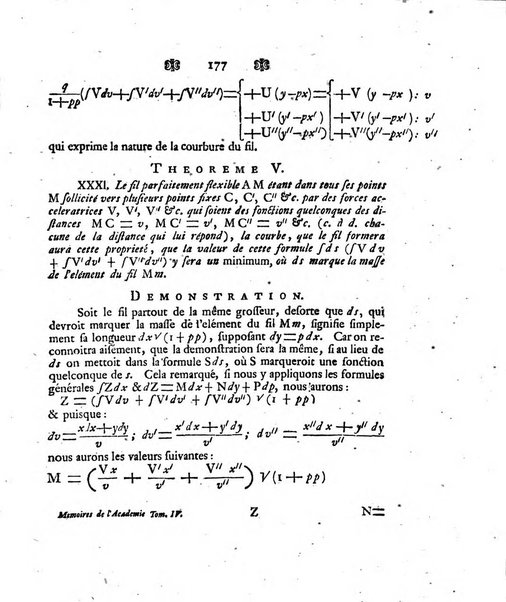 177
q/(1+pp) (∫Vdv+∫V'dv'+∫V''dv'')= { +U (y−px) = { +V (y −px) : v
+U' (y'−px') +V' (y'−px') : v'
+U''(y''−px'') +V''(y''−px''): v''
qui exprime la nature de la courbure du fil.
THEOREME V.
XXXI. Le fil parfaitement flexible A M étant dans tous ses points
M sollicité vers plusieurs points fixes C, C', C'' &c. par des forces ac-
celeratrices V, V', V'' &c. qui soient des fonctions quelconques des di-
stances M C = v, M C' = v', M C'' = v'' &c. (c. à d. cha-
cune de la distance qui lui répond), la courbe, que le fil formera
aura cette proprieté, que la valeur de cette formule ∫ds (∫V dv
+ ∫V'dv' + ∫V''dv'') y sera un minimum, où ds marque la masse
de l'elément du fil Mm.
DEMONSTRATION.
Soit le fil partout de la même grosseur, desorte que ds, qui
devroit marquer la masse de l'elément du fil Mm, signifie simple-
ment sa longueur dx√(1+pp), supposant dy=pdx. Car on re-
connoitra aisément, que la demonstration sera la même, si au lieu de
ds on mettoit dans la formule Sds, où S marqueroit une fonction
quelconque de s. Cela remarqué, si nous y appliquons les formules
générales ∫Zdx & dZ=Mdx+Ndy+Pdp, nous aurons:
Z = (∫V dv + ∫V' dv' + ∫V''dv'') √(1 + pp)
& puisque :
dv = (xdx+ydy)/v ; dv' = (x'dx+y'dy)/v' ; dv'' = (x''dx + y''dy)/v''
nous aurons les valeurs suivantes :
M = (Vx/v + V'x'/v' + V''x''/v'') √(1+pp)
Memoires de l'Academie Tom. IV. Z N=